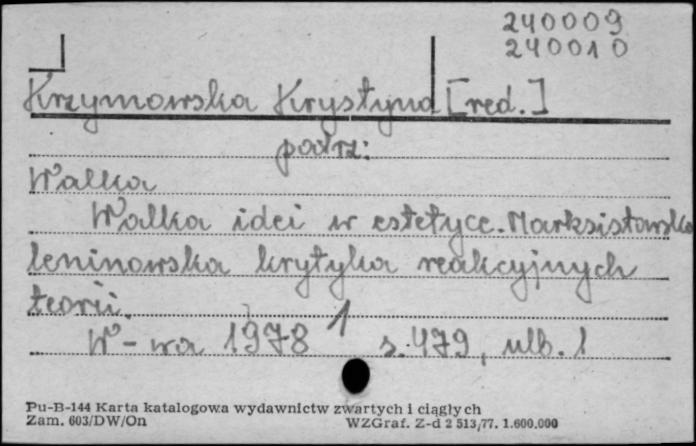 240009
240010
Krzymowska Krystyna [red.]
patrz:
Walka
Walka idei w estetyce. Marksistowsko
leninowska krytyka reakcyjnych
teorii.
W-wa 1978 1 s. 479, nlb. 1
Pu-B-144 Karta katalogowa wydawnictw zwartych i ciągłych
Zam. 603/DW/On WZGraf. Z-d 2 513/77. 1.600.000